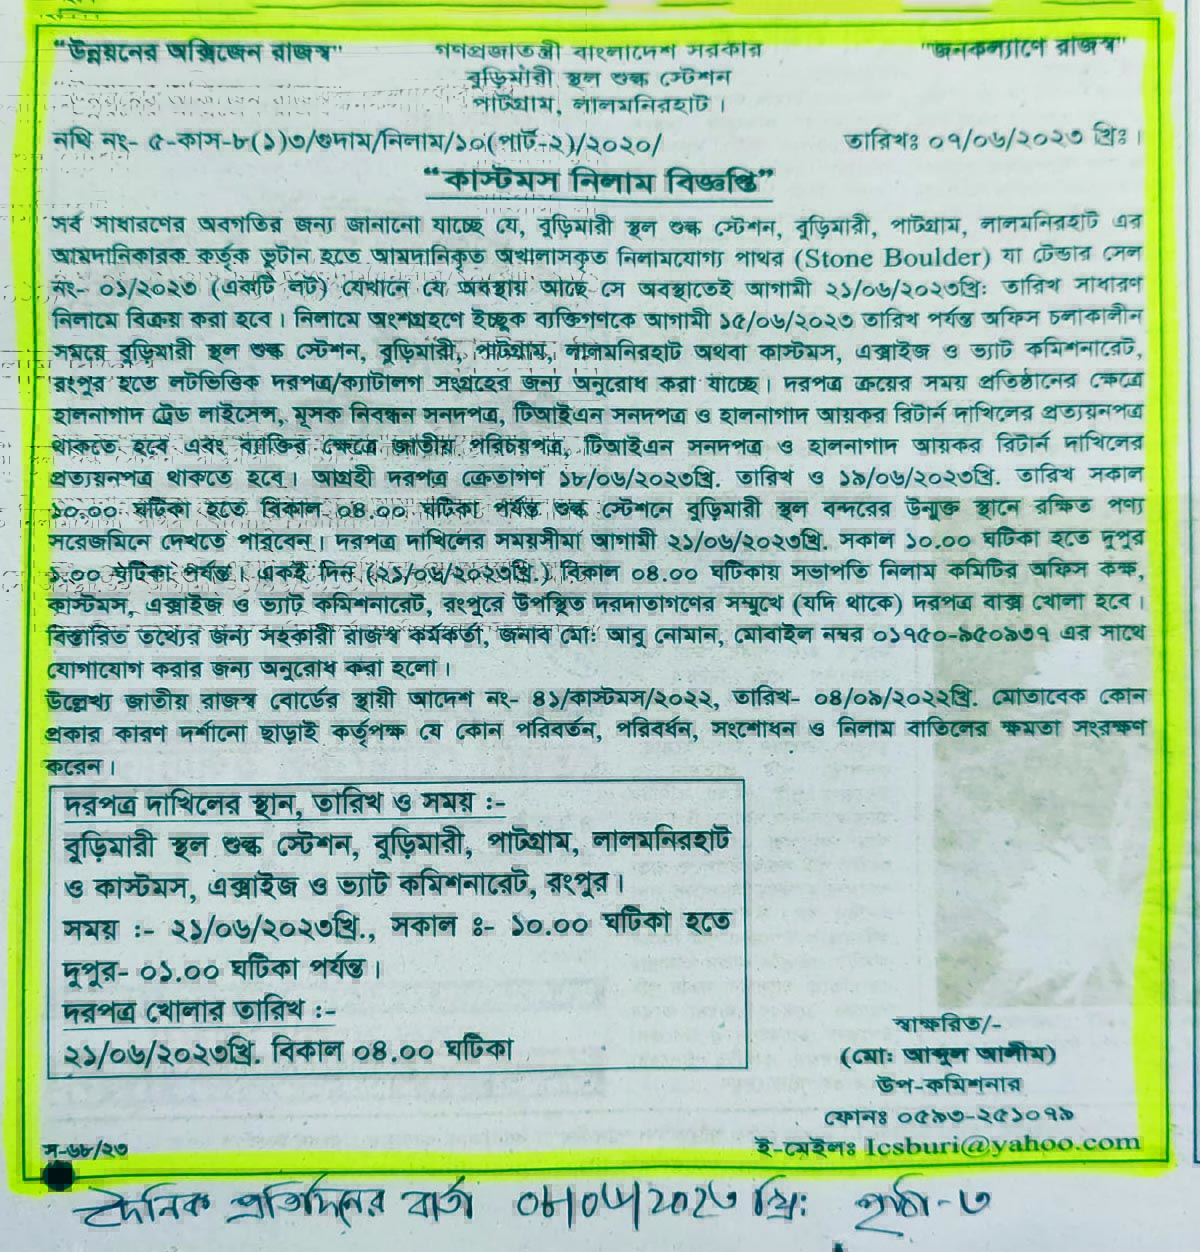 "উন্নয়নের অক্সিজেন রাজস্ব" গণপ্রজাতন্ত্রী বাংলাদেশ সরকার "জনকল্যাণে রাজস্ব"
বুড়িমারী স্থল শুল্ক স্টেশন
পাটগ্রাম, লালমনিরহাট।
নথি নং- ৫-কাস-৮(১)৩/গুদাম/নিলাম/১০(পার্ট-২)/২০২০/ তারিখঃ ০৭/০৬/২০২৩ খ্রিঃ।
"কাস্টমস নিলাম বিজ্ঞপ্তি"
সর্ব সাধারণের অবগতির জন্য জানানো যাচ্ছে যে, বুড়িমারী স্থল শুল্ক স্টেশন, বুড়িমারী, পাটগ্রাম, লালমনিরহাট এর
আমদানিকারক কর্তৃক ভুটান হতে আমদানিকৃত অখালাসকৃত নিলামযোগ্য পাথর (Stone Boulder) যা টেন্ডার সেল
নং- ০১/২০২৩ (একটি লট) যেখানে যে অবস্থায় আছে সে অবস্থাতেই আগামী ২১/০৬/২০২৩খ্রি: তারিখ সাধারণ
নিলামে বিক্রয় করা হবে। নিলামে অংশগ্রহণে ইচ্ছুক ব্যক্তিগণকে আগামী ১৫/০৬/২০২৩ তারিখ পর্যন্ত অফিস চলাকালীন
সময়ে বুড়িমারী স্থল শুল্ক স্টেশন, বুড়িমারী, পাটগ্রাম, লালমনিরহাট অথবা কাস্টমস, এক্সাইজ ও ভ্যাট কমিশনারেট,
রংপুর হতে লটভিত্তিক দরপত্র/ক্যাটালগ সংগ্রহের জন্য অনুরোধ করা যাচ্ছে। দরপত্র ক্রয়ের সময় প্রতিষ্ঠানের ক্ষেত্রে
হালনাগাদ ট্রেড লাইসেন্স, মূসক নিবন্ধন সনদপত্র, টিআইএন সনদপত্র ও হালনাগাদ আয়কর রিটার্ন দাখিলের প্রত্যয়নপত্র
থাকতে হবে এবং ব্যক্তির ক্ষেত্রে জাতীয় পরিচয়পত্র, টিআইএন সনদপত্র ও হালনাগাদ আয়কর রিটার্ন দাখিলের
প্রত্যয়নপত্র থাকতে হবে। আগ্রহী দরপত্র ক্রেতাগণ ১৮/০৬/২০২৩খ্রি. তারিখ ও ১৯/০৬/২০২৩খ্রি. তারিখ সকাল
১০.০০ ঘটিকা হতে বিকাল ০৪.০০ ঘটিকা পর্যন্ত শুল্ক স্টেশনে বুড়িমারী স্থল বন্দরের উন্মুক্ত স্থানে রক্ষিত পণ্য
সরেজমিনে দেখতে পারবেন। দরপত্র দাখিলের সময়সীমা আগামী ২১/০৬/২০২৩খ্রি. সকাল ১০.০০ ঘটিকা হতে দুপুর
১.০০ ঘটিকা পর্যন্ত। একই দিন (২১/০৬/২০২৩খ্রি.) বিকাল ০৪.০০ ঘটিকায় সভাপতি নিলাম কমিটির অফিস কক্ষ,
কাস্টমস, এক্সাইজ ও ভ্যাট কমিশনারেট, রংপুরে উপস্থিত দরদাতাগণের সম্মুখে (যদি থাকে) দরপত্র বাক্স খোলা হবে।
বিস্তারিত তথ্যের জন্য সহকারী রাজস্ব কর্মকর্তা, জনাব মো: আবু নোমান, মোবাইল নম্বর ০১৭৫০-৯৫০৯৩৭ এর সাথে
যোগাযোগ করার জন্য অনুরোধ করা হলো।
উল্লেখ্য জাতীয় রাজস্ব বোর্ডের স্থায়ী আদেশ নং- ৪১/কাস্টমস/২০২২, তারিখ- ০৪/০৯/২০২২খ্রি. মোতাবেক কোন
প্রকার কারণ দর্শানো ছাড়াই কর্তৃপক্ষ যে কোন পরিবর্তন, পরিবর্ধন, সংশোধন ও নিলাম বাতিলের ক্ষমতা সংরক্ষণ
করেন।
দরপত্র দাখিলের স্থান, তারিখ ও সময় :-
বুড়িমারী স্থল শুল্ক স্টেশন, বুড়িমারী, পাটগ্রাম, লালমনিরহাট
ও কাস্টমস, এক্সাইজ ও ভ্যাট কমিশনারেট, রংপুর।
সময় :- ২১/০৬/২০২৩খ্রি., সকাল ঃ- ১০.০০ ঘটিকা হতে
দুপুর- ০১.০০ ঘটিকা পর্যন্ত।
দরপত্র খোলার তারিখ :-
২১/০৬/২০২৩খ্রি. বিকাল ০৪.০০ ঘটিকা
স্বাক্ষরিত/-
(মো: আব্দুল আলীম)
উপ-কমিশনার
ফোনঃ ০৫৯৩-২৫১০৭৯
ই-মেইলঃ lcsburi@yahoo.com
স-৬৮/২৩
দৈনিক প্রতিদিনের বার্তা ০৮/০৬/২০২৩ খ্রি: পৃষ্ঠা-৩